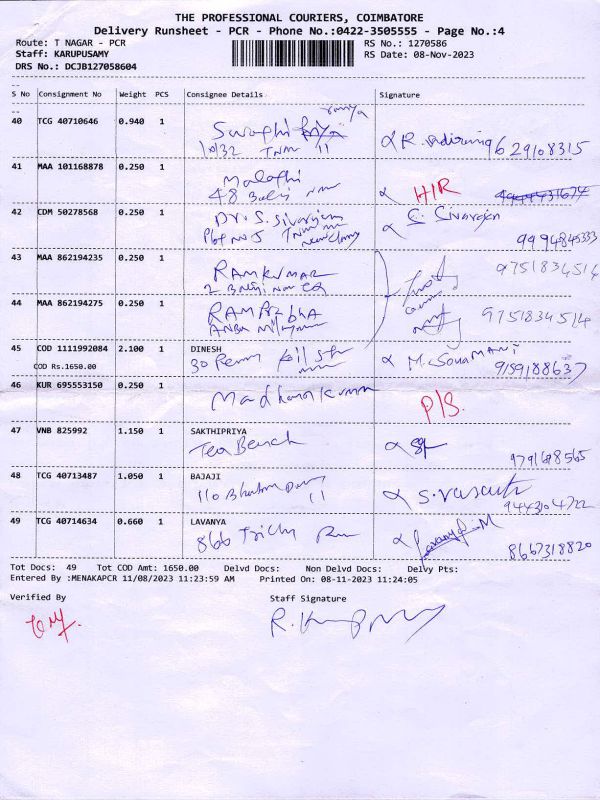 THE PROFESSIONAL COURIERS, COIMBATORE
Delivery Runsheet - PCR - Phone No.:0422-3505555 - Page No.:4
Route: T NAGAR - PCR RS No.: 1270586
Staff: KARUPUSAMY RS Date: 08-Nov-2023
DRS No.: DCJB127058604
S No Consignment No Weight PCS Consignee Details Signature
40 TCG 40710646 0.940 1
9629108315
41 MAA 101168878 0.250 1 Malathi
48 Balaji H/R
42 CDM 50278568 0.250 1 Dr. S. Sivarajan S. Sivarajan
Plot No 5 9994845333
43 MAA 862194235 0.250 1 RAMKUMAR 9751834514
2 Balaji
44 MAA 862194275 0.250 1 RAMPRABHA 9751834514
45 COD 1111992084 2.100 1 DINESH M. Soumani
COD Rs.1650.00 30 9159188637
46 KUR 695553150 0.250 1 Madhankumar P/S.
47 VNB 825992 1.150 1 SAKTHIPRIYA
Tea Bench
48 TCG 40713487 1.050 1 BAJAJI S. Vasanth
110 9443104722
49 TCG 40714634 0.660 1 LAVANYA Lavanya. M
866 Trichy 8667318820
Tot Docs: 49 Tot COD Amt: 1650.00 Delvd Docs: Non Delvd Docs: Delvy Pts:
Entered By :MENAKAPCR 11/08/2023 11:23:59 AM Printed On: 08-11-2023 11:24:05
Verified By Staff Signature